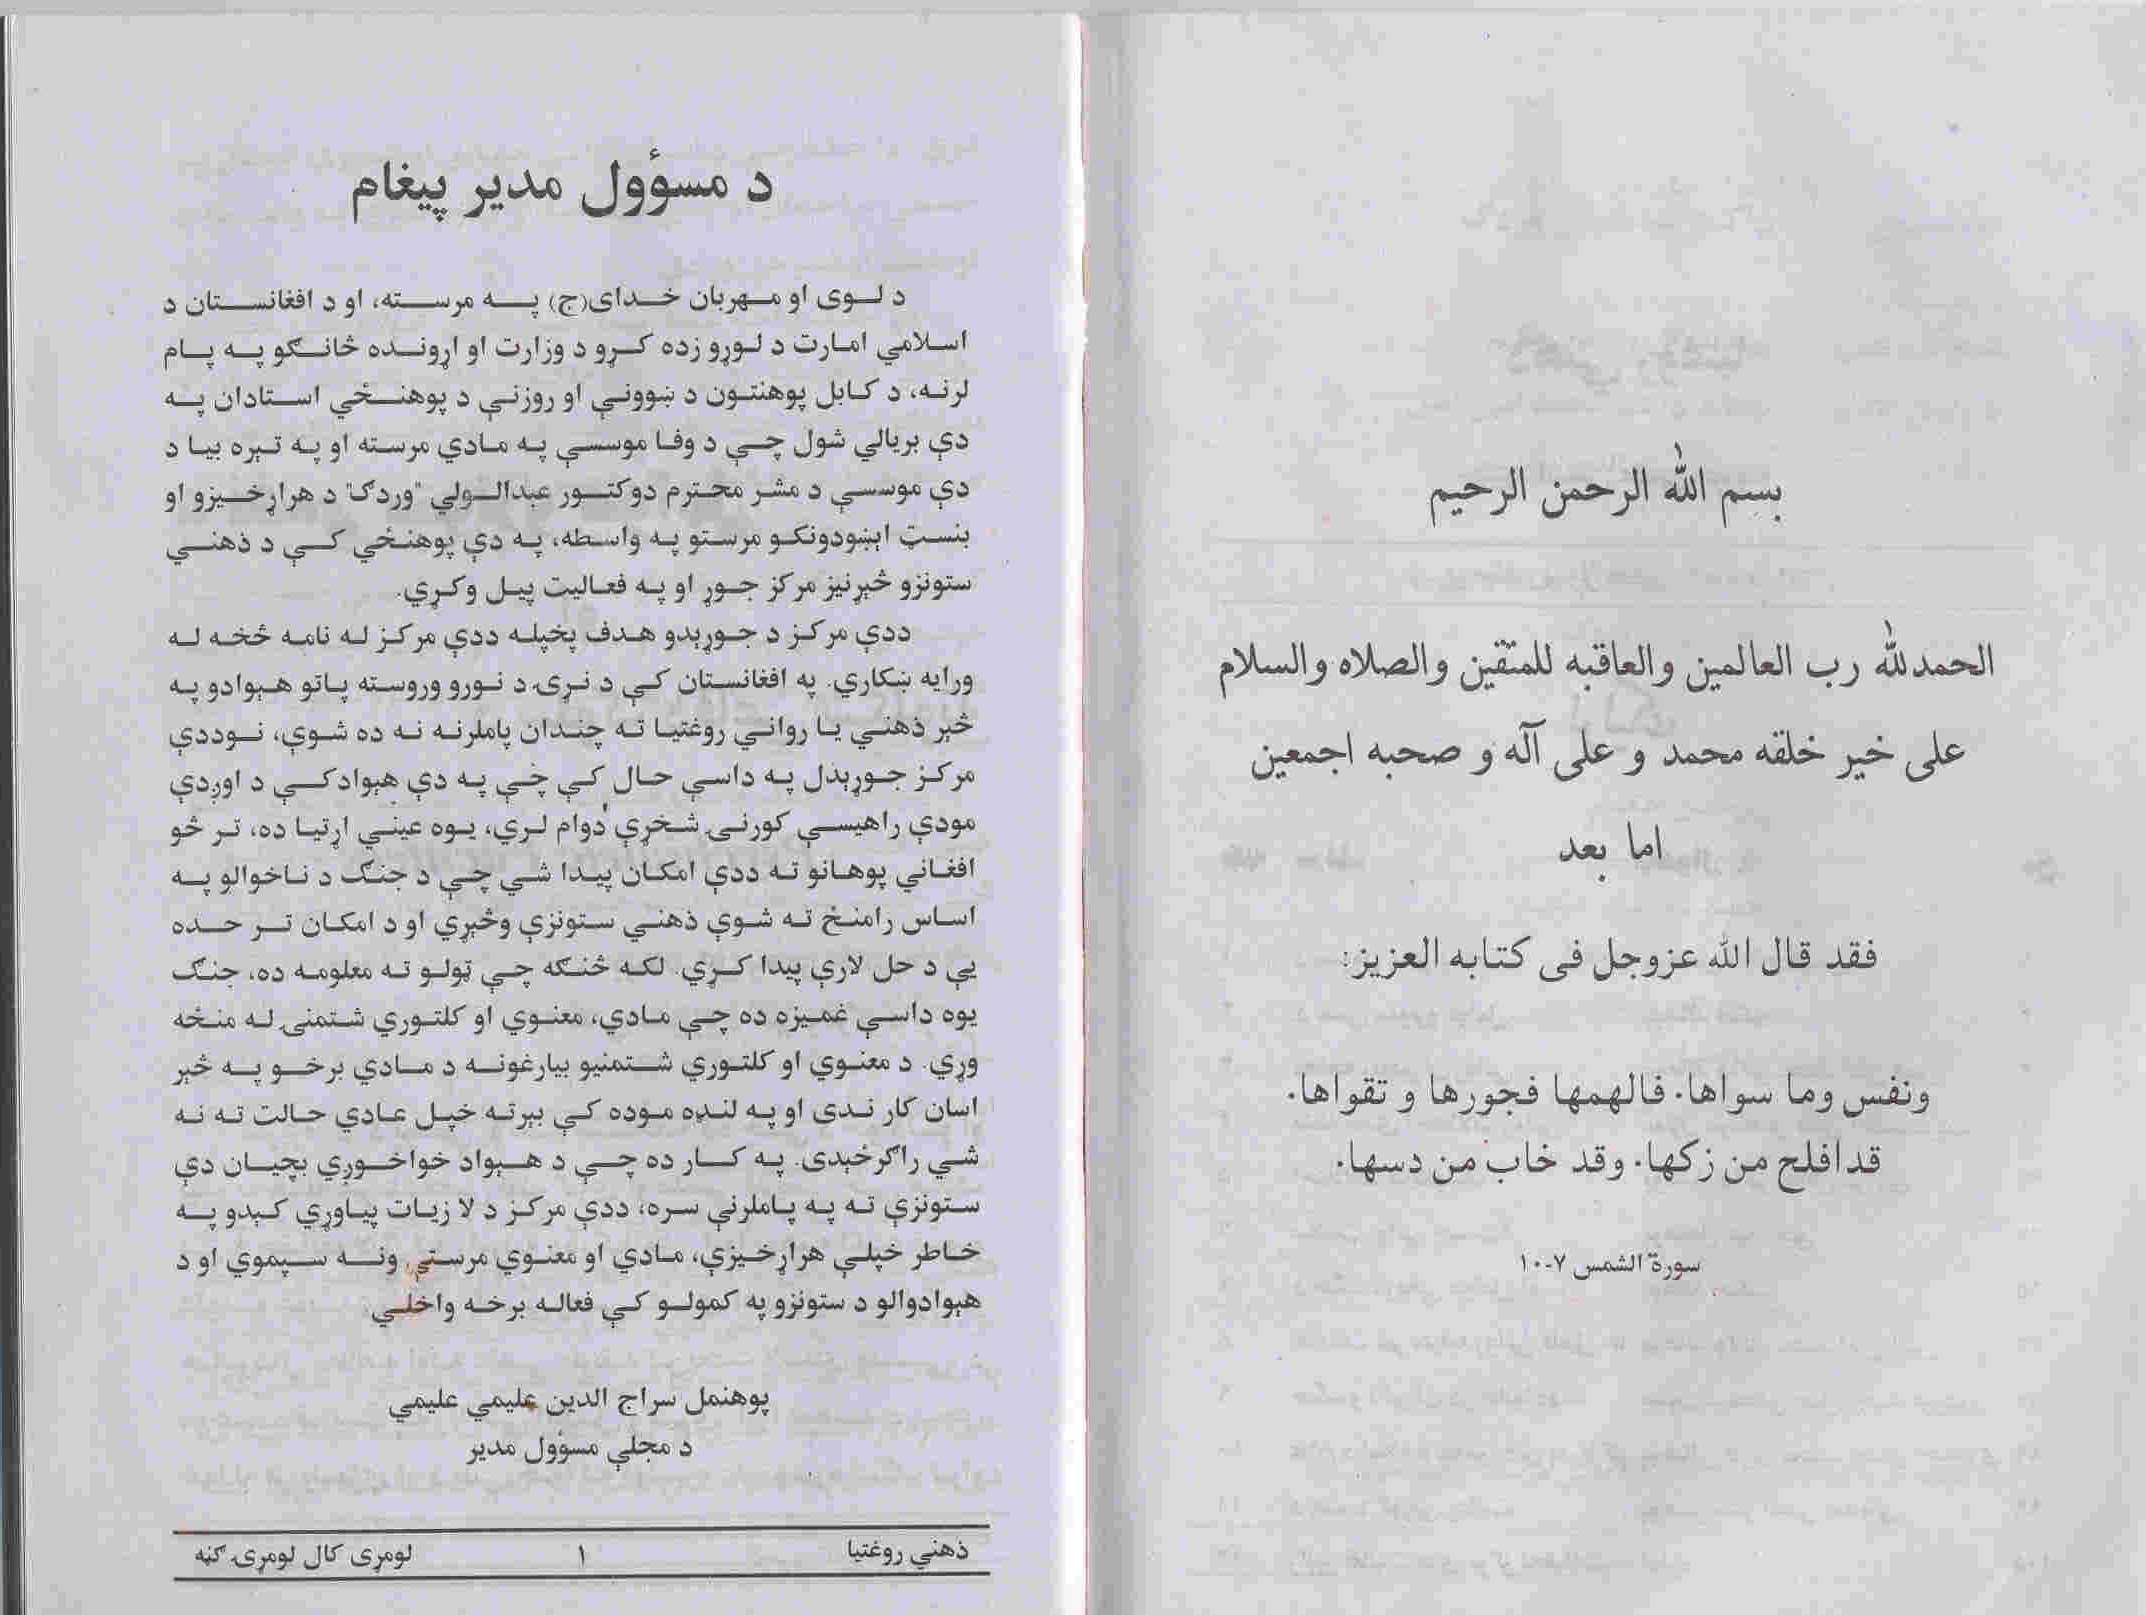 بسم الله الرحمن الرحیم
الحمدلله رب العالمین والعاقبه للمتقین والصلاه والسلام
علی خیر خلقه محمد و علی آله و صحبه اجمعین
اما بعد
فقد قال الله عزوجل فی کتابه العزیز:
ونفس وما سواها. فالهمها فجورها و تقواها.
قدافلح من زکها. وقد خاب من دسها.
سورة الشمس ۷-۱۰
د مسؤول مدیر پیغام
د لوی او مهربان خدای(ج) په مرسته، او د افغانستان د
اسلامي امارت د لوړو زده کړو د وزارت او اړونده څانګو په پام
لرنه، د کابل پوهنتون د ښوونې او روزنې د پوهنځي استادان په
دې بریالي شول چې د وفا موسسې په مادي مرسته او په تېره بیا د
دې موسسې د مشر محترم دوکتور عبدالولي "وردګ" د هراړخیزو او
بنسټ اېښودونکو مرستو په واسطه، په دې پوهنځي کې د ذهني
ستونزو څېړنیز مرکز جوړ او په فعالیت پیل وکړي.
ددې مرکز د جوړېدو هدف پخپله ددې مرکز له نامه څخه له
ورایه ښکاري. په افغانستان کې د نړۍ د نورو وروسته پاتو هېوادو په
څېر ذهني یا رواني روغتیا ته چندان پاملرنه نه ده شوې، نوددې
مرکز جوړېدل په داسې حال کې چې په دې هېوادکې د اوږدې
مودې راهیسې کورنۍ شخړې دوام لري، یوه عیني اړتیا ده، تر څو
افغاني پوهانو ته ددې امکان پیدا شي چې د جنګ د ناخوالو په
اساس رامنځ ته شوې ذهني ستونزې وڅېړي او د امکان تر حده
یې د حل لارې پیدا کړي. لکه څنګه چې ټولو ته معلومه ده، جنګ
یوه داسې غمیزه ده چې مادي، معنوي او کلتوري شتمنۍ له منځه
وړي. د معنوي او کلتوري شتمنیو بیارغونه د مادي برخو په څېر
اسان کار ندی او په لنډه موده کې بېرته خپل عادي حالت ته نه
شي راګرځېدی. په کار ده چې د هېواد خواخوږي بچیان دې
ستونزې ته په پاملرنې سره، ددې مرکز د لا زیات پیاوړي کېدو په
خاطر خپلې هراړخیزې، مادي او معنوي مرستې ونه سپموي او د
هېوادوالو د ستونزو په کمولو کې فعاله برخه واخلي
پوهنمل سراج الدین علیمي علیمي
د مجلې مسؤول مدیر
ذهني روغتیا ۱ لومړی کال لومړۍ ګڼه